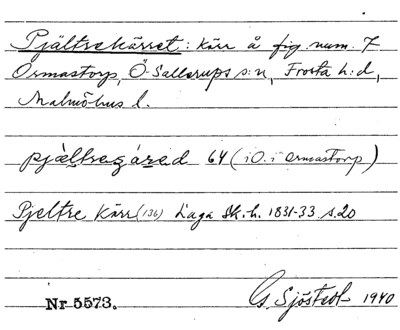 Pjältrekärret: kärr å fig. num. 7
Ormastorp, Ö. Sallerups s:n, Frosta h:d,
Malmöhus l.
pjæltregáred 64 (i O. i Ormastorp)
Pjeltre Kärr (136) Laga Sk. h. 1831-33 s. 20
Nr 5573. G. Sjöstedt 1940